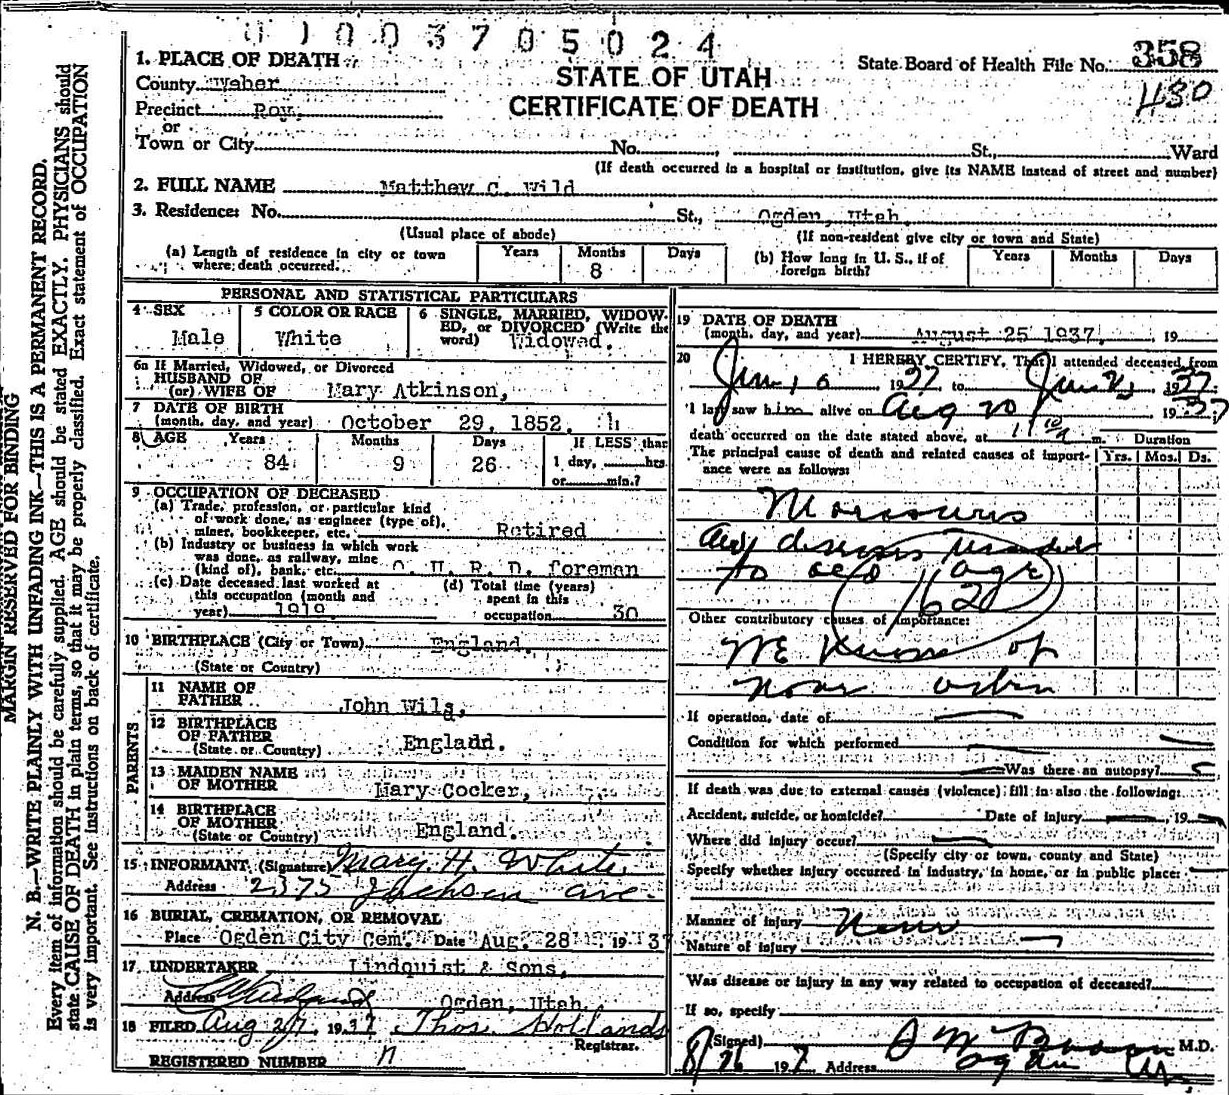 0 1 0 0 3 7 0 5 0 2 4
STATE OF UTAH
CERTIFICATE OF DEATH
State Board of Health File No. 358
480
1. PLACE OF DEATH
County Weber
Precinct Roy,
or
Town or City No. St., Ward
(If death occurred in a hospital or institution, give its NAME instead of street and number)
2. FULL NAME Matthew C. Wild
3. Residence: No. St., Ogden, Utah,
(Usual place of abode) (If non-resident give city or town and State)
(a) Length of residence in city or town where death occurred. Years Months 8 Days
(b) How long in U. S., if of foreign birth? Years Months Days
PERSONAL AND STATISTICAL PARTICULARS
4 SEX Male
5 COLOR OR RACE White
6 SINGLE, MARRIED, WIDOWED, or DIVORCED (Write the word) Widowed.
6a If Married, Widowed, or Divorced
HUSBAND OF
(or) WIFE OF Mary Atkinson,
7 DATE OF BIRTH
(month, day, and year) October 29, 1852,
8 AGE Years 84 Months 9 Days 26 If LESS than 1 day, hrs. or min.?
9 OCCUPATION OF DECEASED
(a) Trade, profession, or particular kind of work done, as engineer (type of), miner, bookkeeper, etc. Retired
(b) Industry or business in which work was done, as railway, mine (kind of), bank, etc. O. U. R. D. foreman
(c) Date deceased last worked at this occupation (month and year) 1919
(d) Total time (years) spent in this occupation 30
10 BIRTHPLACE (City or Town) England.
(State or Country)
PARENTS
11 NAME OF FATHER John Wilg,
12 BIRTHPLACE OF FATHER (State or Country) Engladd.
13 MAIDEN NAME OF MOTHER Mary Cocker,
14 BIRTHPLACE OF MOTHER (State or Country) England.
15 INFORMANT (Signature) Mary H. White
Address 2375 Jackson ave.
16 BURIAL, CREMATION, OR REMOVAL
Place Ogden City Cem. Date Aug. 28 19 37
17 UNDERTAKER Lindquist & Sons,
Address Ogden, Utah,
18 FILED Aug 27, 1937 Thos. Hollands
Registrar.
REGISTERED NUMBER n
19 DATE OF DEATH
(month, day, and year) August 25 1937, 19
20 I HEREBY CERTIFY, That I attended deceased from
1937 to 1937
I last saw him alive on Aug 20 1937
death occurred on the date stated above, at m. Duration
The principal cause of death and related causes of importance were as follows: Yrs. Mos. Ds.
to old age
162
Other contributory causes of importance:
We know of
none other
If operation, date of
Condition for which performed
Was there an autopsy?
If death was due to external causes (violence) fill in also the following:
Accident, suicide, or homicide? Date of injury , 19
Where did injury occur?
(Specify city or town, county and State)
Specify whether injury occurred in industry, in home, or in public place:
Manner of injury None
Nature of injury
Was disease or injury in any way related to occupation of deceased?
If so, specify
(Signed) M.D.
8/26 1937 Address Ogden Ut
MARGIN RESERVED FOR BINDING
N. B.—WRITE PLAINLY WITH UNFADING INK—THIS IS A PERMANENT RECORD.
Every item of information should be carefully supplied. AGE should be stated EXACTLY. PHYSICIANS should
state CAUSE OF DEATH in plain terms, so that it may be properly classified. Exact statement of OCCUPATION
is very important. See instructions on back of certificate.